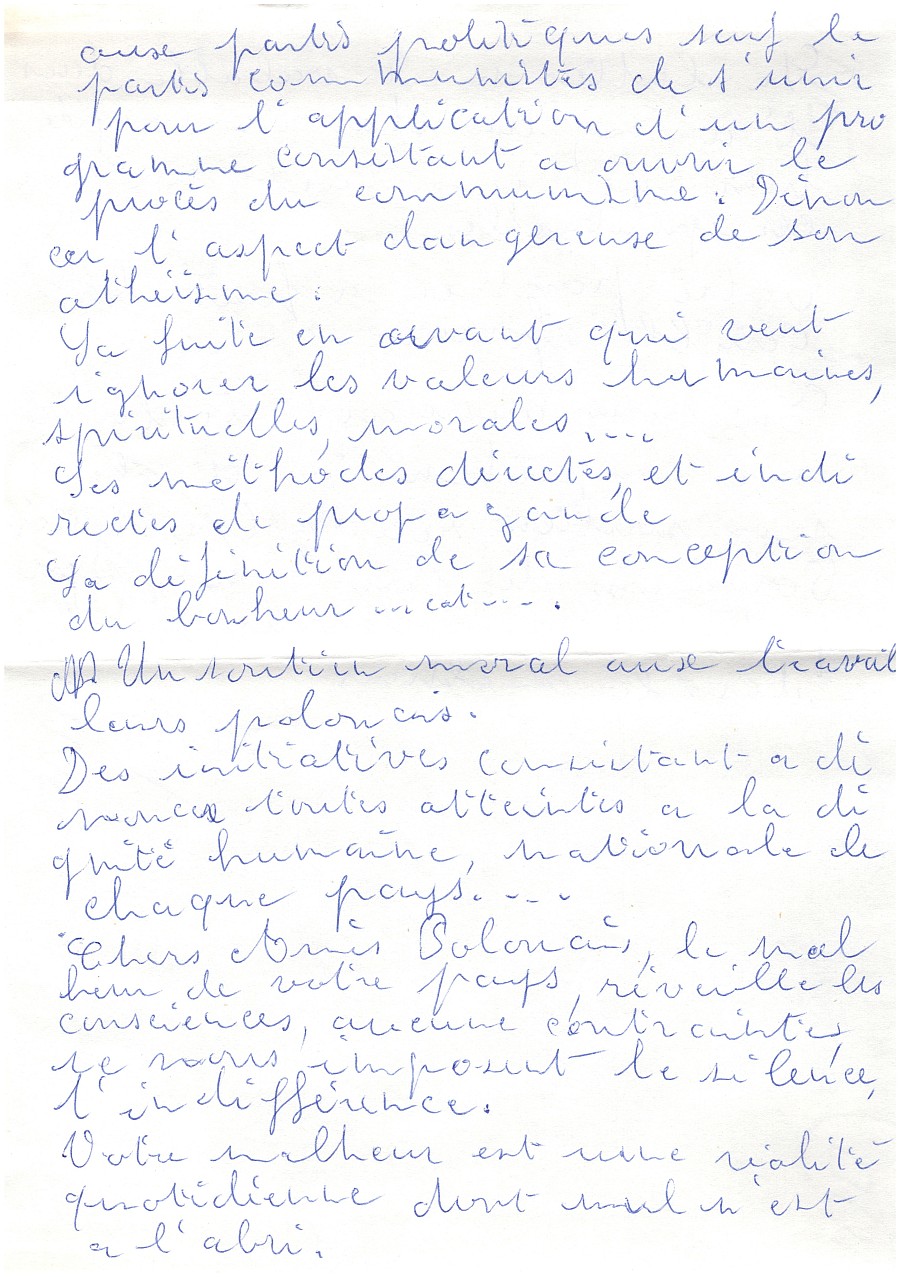 aux partis politiques sauf le
partis communistes de s'unir
pour l'application d'un pro
gramme consistant a ouvrir le
procès du communisme. Dénon
cer l'aspect dangereuse de son
athéïsme.
La fuite en avant qui veut
ignorer les valeurs humaines,
spirituelles, morales....
Ses méthodes directes, et indi
rectes de propagande
La définition de sa conception
du bonheur ... cat ....
Un soutien moral aux travail
leurs polonais.
Des initiatives consistant a dé
noncer toutes atteintes a la di
gnité humaine, nationale de
chaque pays....
Chers Amis Polonais, le mal
heur de votre pays, réveille les
consciences, aucune contraintes,
ne nous imposent le silence,
l'indifférence.
Votre malheur est une réalité
quotidienne dont nul n'est
a l'abri.